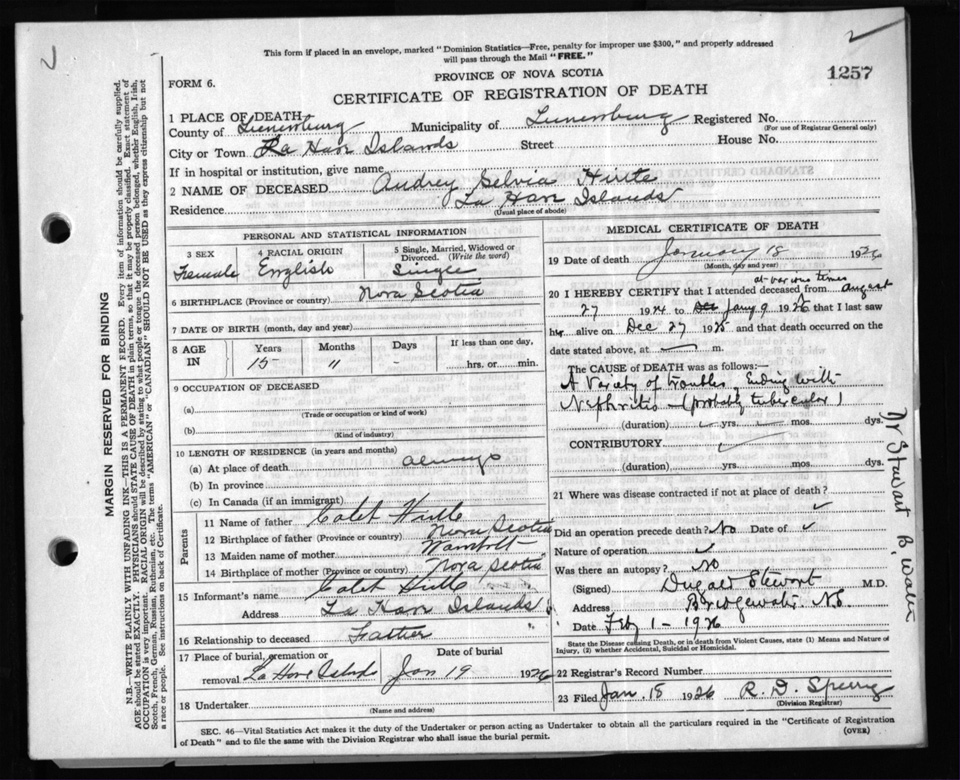 2
This form if placed in an envelope, marked "Dominion Statistics—Free, penalty for improper use $300," and properly addressed
will pass through the Mail "FREE."
FORM 6.
PROVINCE OF NOVA SCOTIA
1257
CERTIFICATE OF REGISTRATION OF DEATH
1 PLACE OF DEATH
County of Lunenburg Municipality of Lunenburg Registered No.
(For use of Registrar General only)
City or Town La Have Islands Street House No.
If in hospital or institution, give name
2 NAME OF DECEASED Audrey Selvia
Residence La Have Islands
(Usual place of abode)
PERSONAL AND STATISTICAL INFORMATION
3 SEX 4 RACIAL ORIGIN 5 Single, Married, Widowed or Divorced. (Write the word)
Female English Single
6 BIRTHPLACE (Province or country) Nova Scotia
7 DATE OF BIRTH (month, day and year)
8 AGE IN Years Months Days If less than one day,
15 11 - hrs. or min.
9 OCCUPATION OF DECEASED
(a)
(Trade or occupation or kind of work)
(b)
(Kind of industry)
10 LENGTH OF RESIDENCE (in years and months)
(a) At place of death always
(b) In province
(c) In Canada (if an immigrant)
Parents
11 Name of father
12 Birthplace of father (Province or country) Nova Scotia
13 Maiden name of mother Wambolt
14 Birthplace of mother (Province or country) Nova Scotia
15 Informant's name
Address La Have Islands
16 Relationship to deceased Father
17 Place of burial, cremation or removal La Have Islands Date of burial Jan 19 1926
18 Undertaker
(Name and address)
MEDICAL CERTIFICATE OF DEATH
19 Date of death January 18 1926
(Month, day and year)
at various times
20 I HEREBY CERTIFY that I attended deceased from August
27 1924 to Dec Jany 9 1926 that I last saw
her alive on Dec 27 1925 and that death occurred on the
date stated above, at — m.
The CAUSE OF DEATH was as follows:—
A Variety of troubles, Ending with
Nephritis — (probably tubercular)
(duration) yrs. mos. dys.
CONTRIBUTORY
(duration) yrs. mos. dys.
21 Where was disease contracted if not at place of death?
Did an operation precede death? No Date of
Nature of operation
Was there an autopsy? No
(Signed) Dugald Stewart M.D.
Address Bridgewater. N.S.
Date Feby 1 - 1926
State the Disease causing Death, or in death from Violent Causes, state (1) Means and Nature of
Injury, (2) whether Accidental, Suicidal or Homicidal.
22 Registrar's Record Number
23 Filed Jan. 18 1926 R. D. Sperry
(Division Registrar)
SEC. 46—Vital Statistics Act makes it the duty of the Undertaker or person acting as Undertaker to obtain all the particulars required in the "Certificate of Registration
of Death" and to file the same with the Division Registrar who shall issue the burial permit.
(OVER)
MARGIN RESERVED FOR BINDING
N.B.—WRITE PLAINLY WITH UNFADING INK—THIS IS A PERMANENT RECORD. Every item of information should be carefully supplied.
AGE should be stated EXACTLY. PHYSICIANS should STATE CAUSE OF DEATH in plain terms, so that it may be properly classified. Exact statement of
OCCUPATION is very important. RACIAL ORIGIN will be described by stating to what people or tongue the deceased person belonged, whether English, Irish,
Scotch, French, German, Russian, Ruthenian, etc. The terms "AMERICAN" or "CANADIAN" SHOULD NOT BE USED as they express citizenship but not
a race or people. See instructions on back of Certificate.
Dr Stewart B. Water